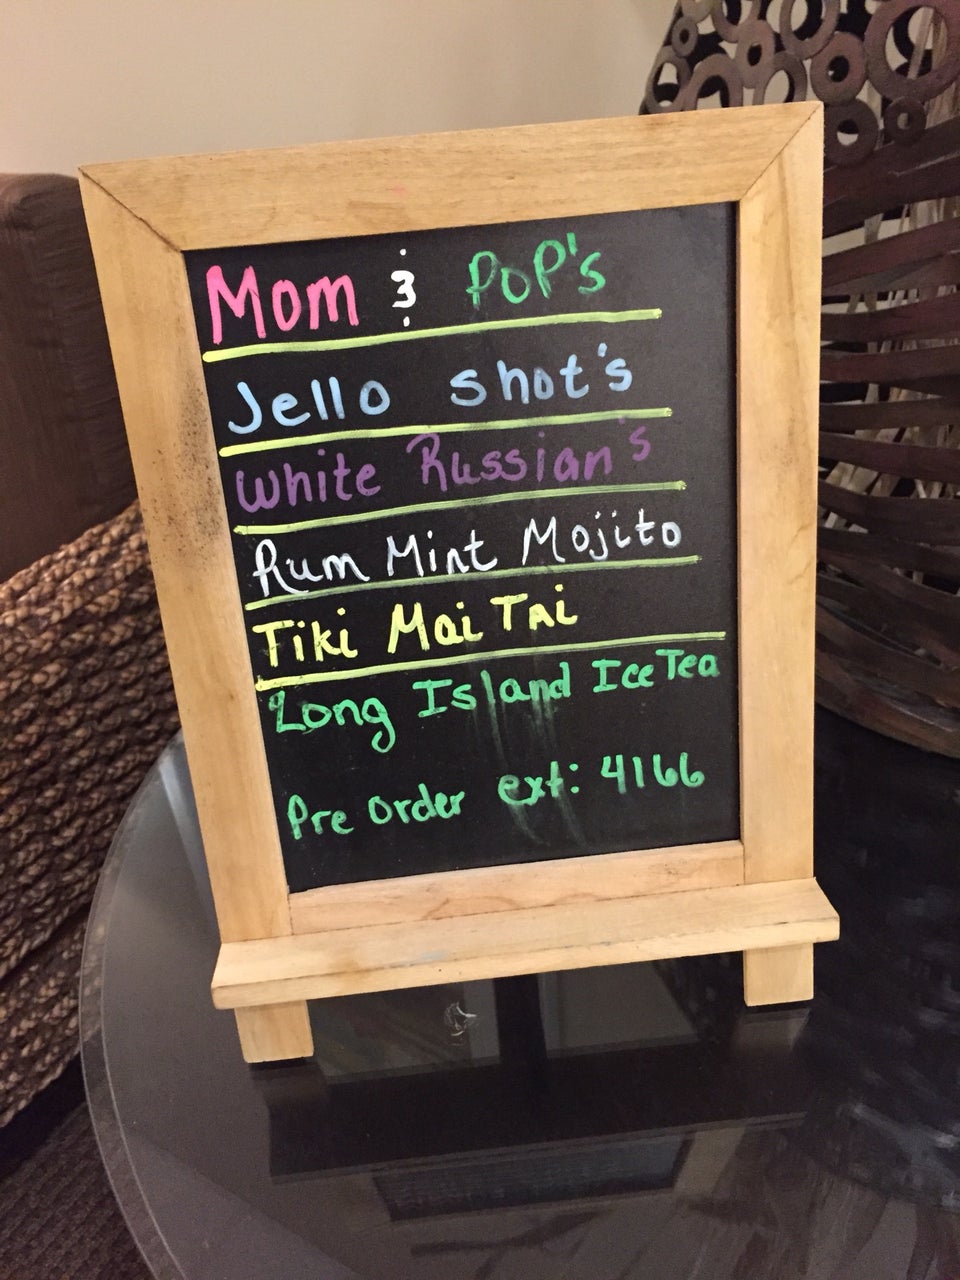 Mom & PoP's
Jello shot's
White Russian's
Rum Mint Mojito
Tiki Mai Tai
Long Island Ice Tea
Pre order ext: 4166